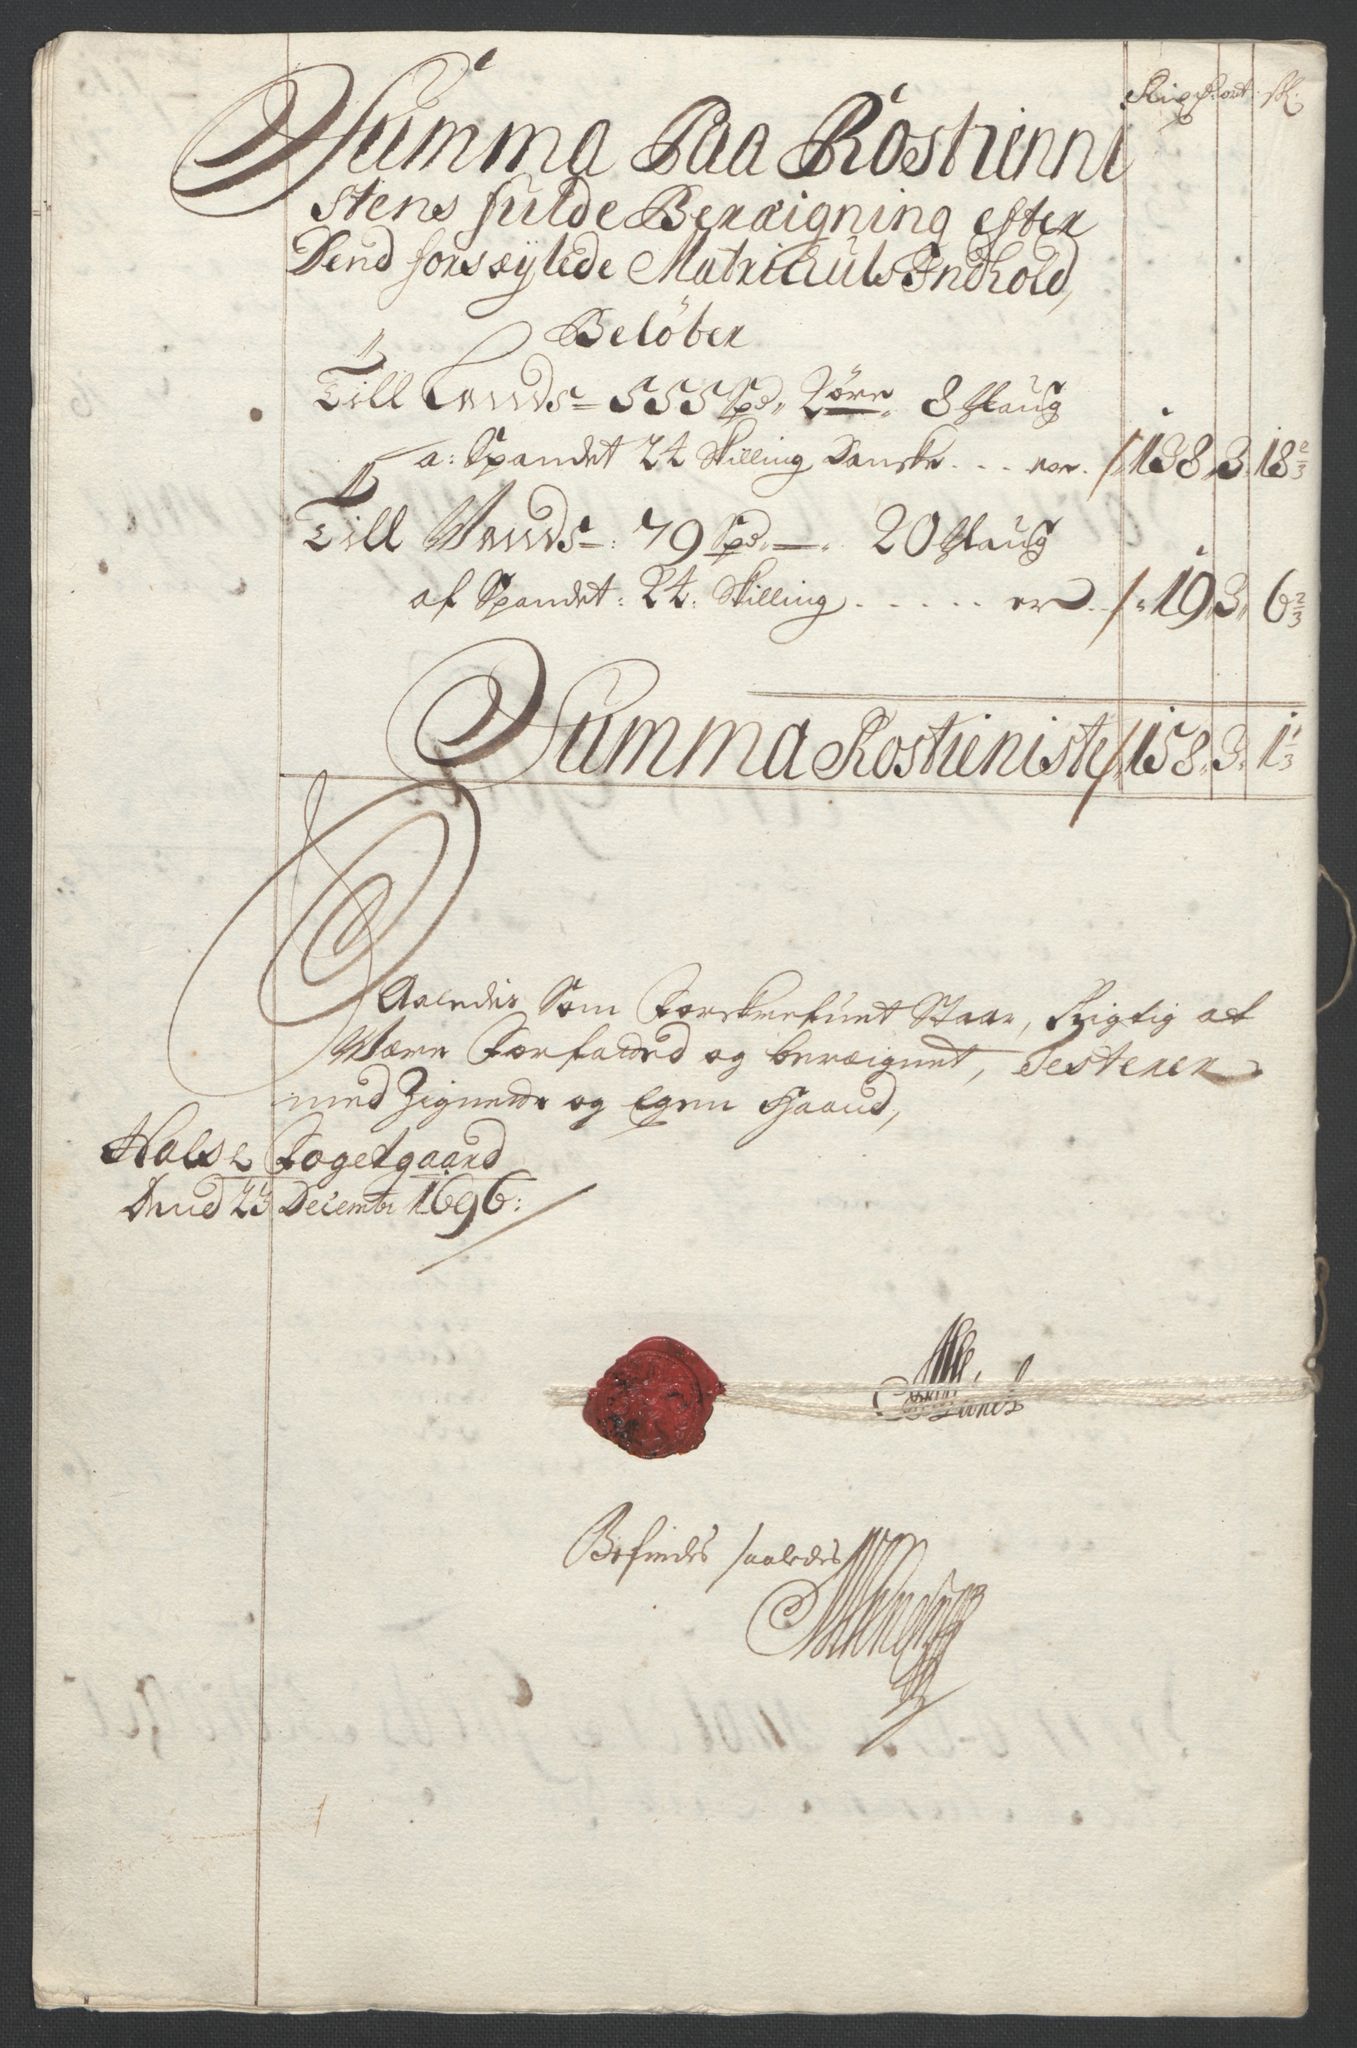 ort. sk.
Summa Paa Rostienni
stens fulde Beræigning efter
Dend forseylede Matriculs Indhold,
Beløber
Till Lands = 555 Spd. 2 øre. 8 Maug
a: Spandet 24 Skilling Danske . . . er. 138. 3. 18 2/3
Till Vands =: 79 Spd. —. 20 Maug
af Spandet: 24: Skilling . . . . . er . . 19. 3. 6 2/3
Summa Rostieniste 158. 3. 1 1/3
Saaledis Som Forskrefuet Staar, Rigtig at
Være Forfatted og beræignet, Testerer
med Zignette og Egen Haand,
Halse Fogetgaard
Dend 23 Decembr 1696:
Befindes saaledes